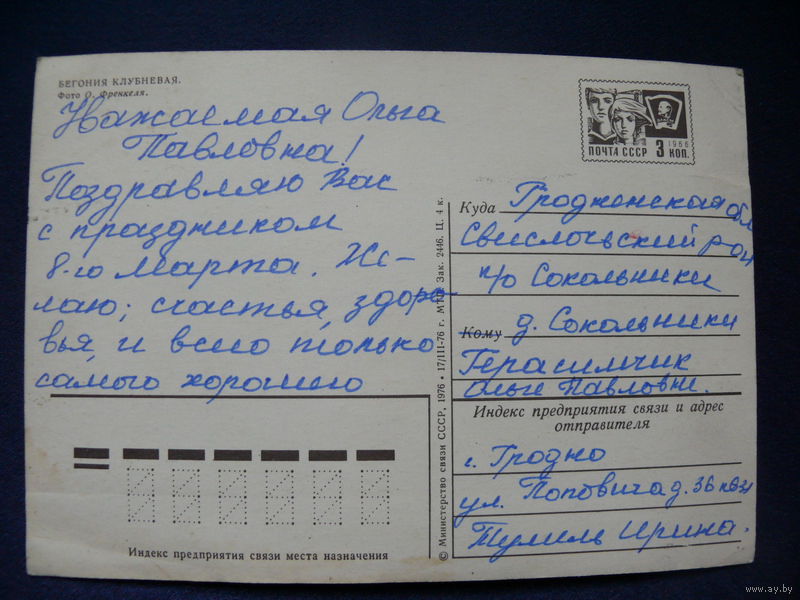 БЕГОНИЯ КЛУБНЕВАЯ.
Фото О. Френкеля.
Уважаемая Ольга
Павловна!
Поздравляю Вас
с праздником
8-го Марта. Же-
лаю; счастья, здоро-
вья, и всего только
самого хорошего
Индекс предприятия связи места назначения
© Министерство связи СССР, 1976 • 17/III-76 г. Зак. 2446. Ц. 4 к.
ПОЧТА СССР 3 КОП.
1966
Куда Гродненская обл
Свислочский р-он
п/о Сокольники
Кому д. Сокольники
Герасимчик
Ольге Павловне.
Индекс предприятия связи и адрес
отправителя
г. Гродно
ул. Поповича д. 36 кв
Тумель Ирина.
www.ay.by